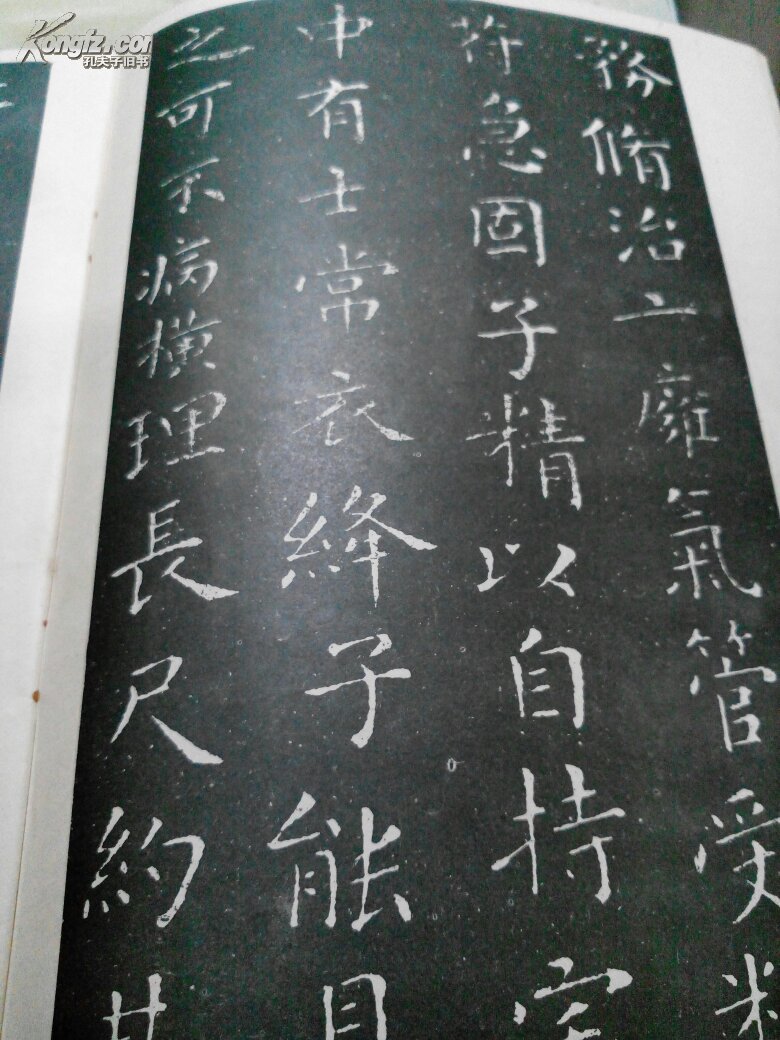 Kongfz.com
孔夫子旧书
務脩治玄廱氣管受精
符急固子精以自持宅
中有士常衣絳子能見
之可不病橫理長尺約其